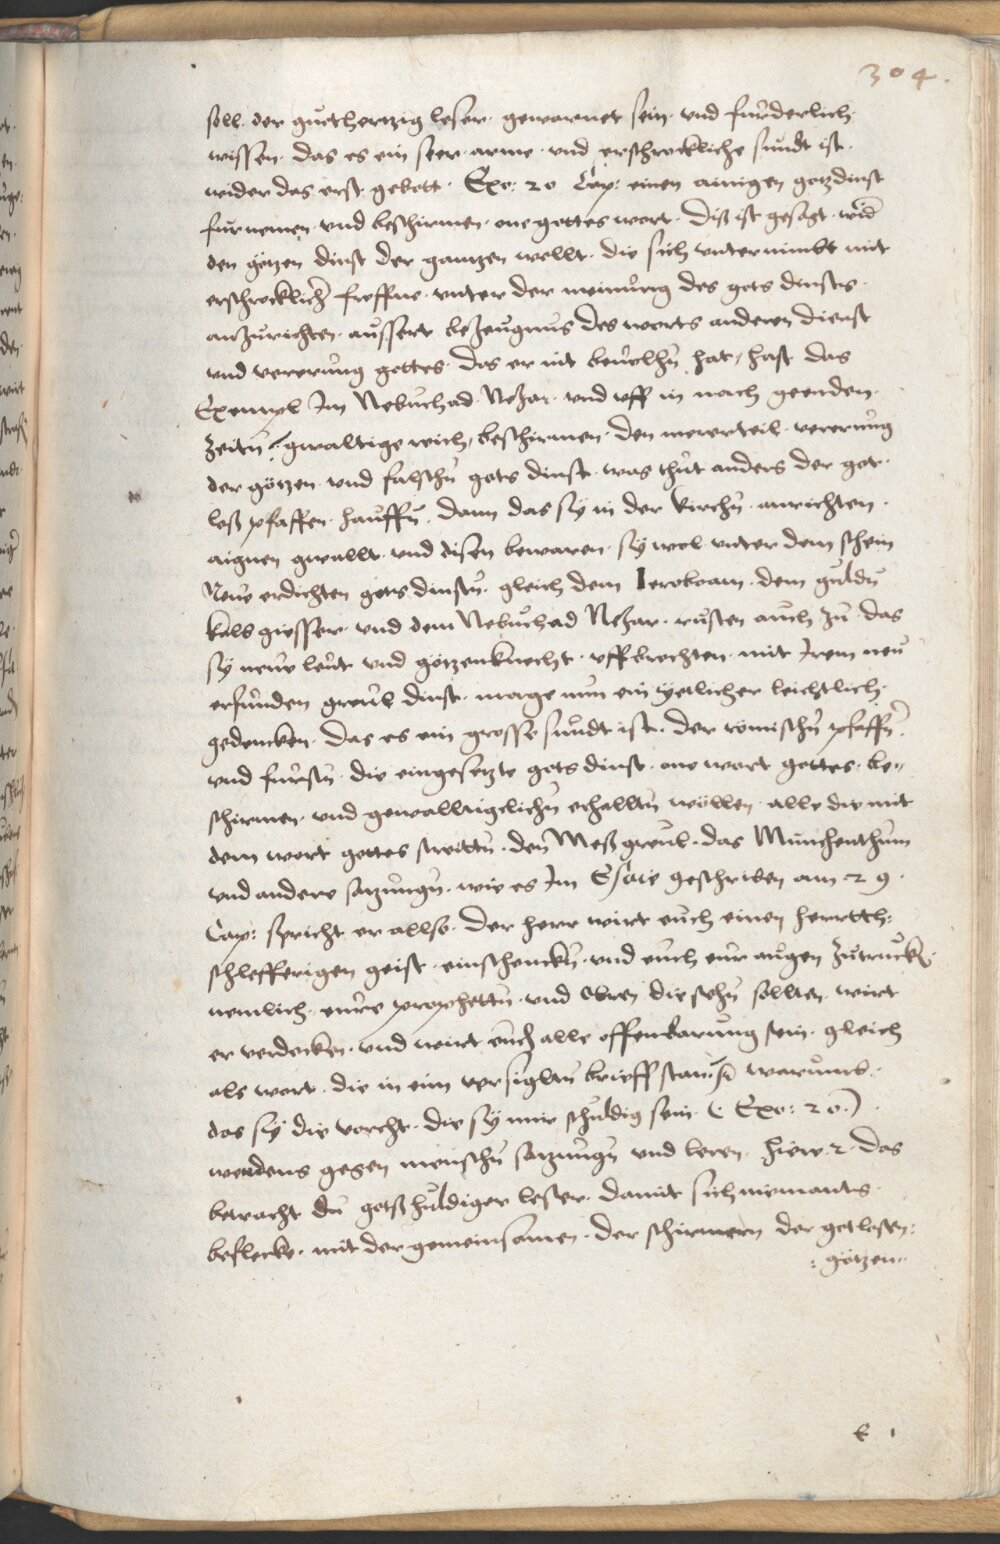 304.
soll. der guthertzig leser. gewarnet sein. vnd furderlich.
wissen. das es ein seer. arme. vnd erschrockliche sundt ist.
wider das erst. gebott. Exo: 20 Cap: einen ainigen gotzdinst
furnemen. vnd beschirmen. one gottes wort. diß ist gesagt. wid
den götzen dinst der gantzen wellt. die sich vnternimbt mit
erschrocklichn freffne. vnter der meinung des gots dinsts.
anzurichten. aussert bezeugnus des worts anderen dienst
vnd vererung gottes. das er nit beuelhn hat, hast das
Exempl Im Nebuchad Nezar. vnd vff in nach geenden.
zeitn gwaltige reich, beschirmen. den mererteil. vererung
der götzen. vnd falschn gots dinst. was thut anders der got.
loß pfaffen. hauffn. dann das sy in der kirchn. anrichten.
aignen gwallt. vnd disen bewaren. sy wol. vnter dem schein
Neuw erdichten gots dinstn. gleich dem Ieroboam. dem guldn
kelb giesser. vnd dem Nebuchad Nezar. rusten auch zu. das
sy neuw leut vnd götzenknecht. vffbrechten. mit Irem neu
erfunden greul dinst. mage nun ein yetlicher leichtlich.
gedencken. das es ein grosse sundt ist. der römischn pfaffn.
vnd furstn. die eingesetzte gots dinst. one wort gottes. be„
schirmen. vnd gewalltigclichn erhalltn wöllen. alle die mit
dem wort gottes streittn. den Meß greul. das Münchenthum
vnd andere satzungn. wie es Im Esaie geschriben am 29.
Cap: spricht er allso. der herr wirt euch einen herrtth:
schlefferigen geist. einschenckn. vnd euch eur augen zutruckn.
nemlich. eure prophettn. vnd Obren die sehn sollten. wirt
er verdecken. vnd wirt euch alle offenbarung sein. gleich
als wort. die in eim versigltn brieff standn warumb.
das sy die vorcht. die sy mir schuldig sein. (Exo: 20.)
wendens gegen menschn satzungn vnd leren. Hiere. 2. das
betracht du gotßhuldiger leser. damit sich niemants.
beflecke. mit der gemeinsamen. der schirmern der gotlosen:
: götzen.
E 1